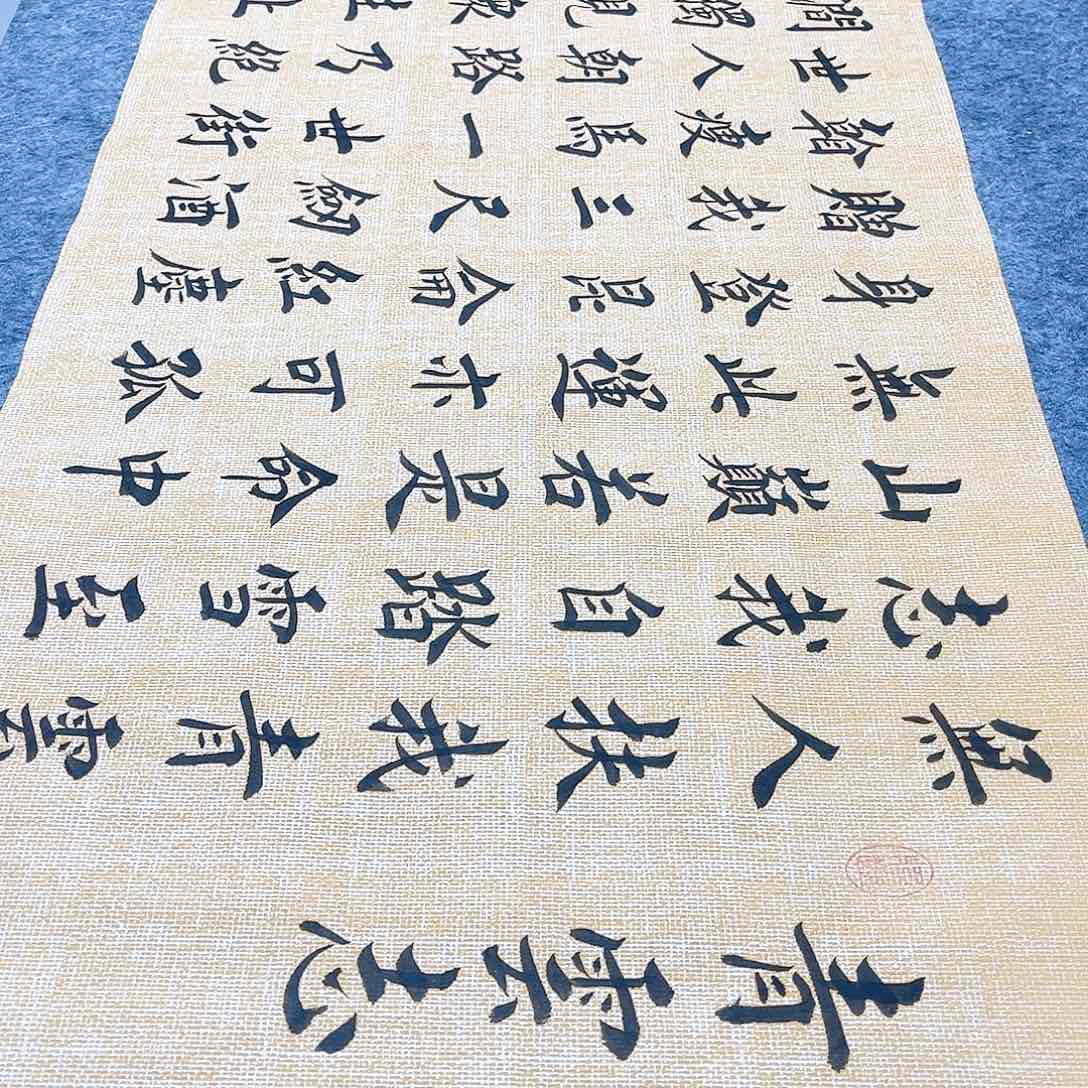 青雲志
無人扶我青雲
志我自踏雪至
山巔若是命中
無此運亦可孤
身登昆侖紅塵
贈我三尺劍酒
翰瘦馬一世
世人朝路乃絕
澗獨見眾生止